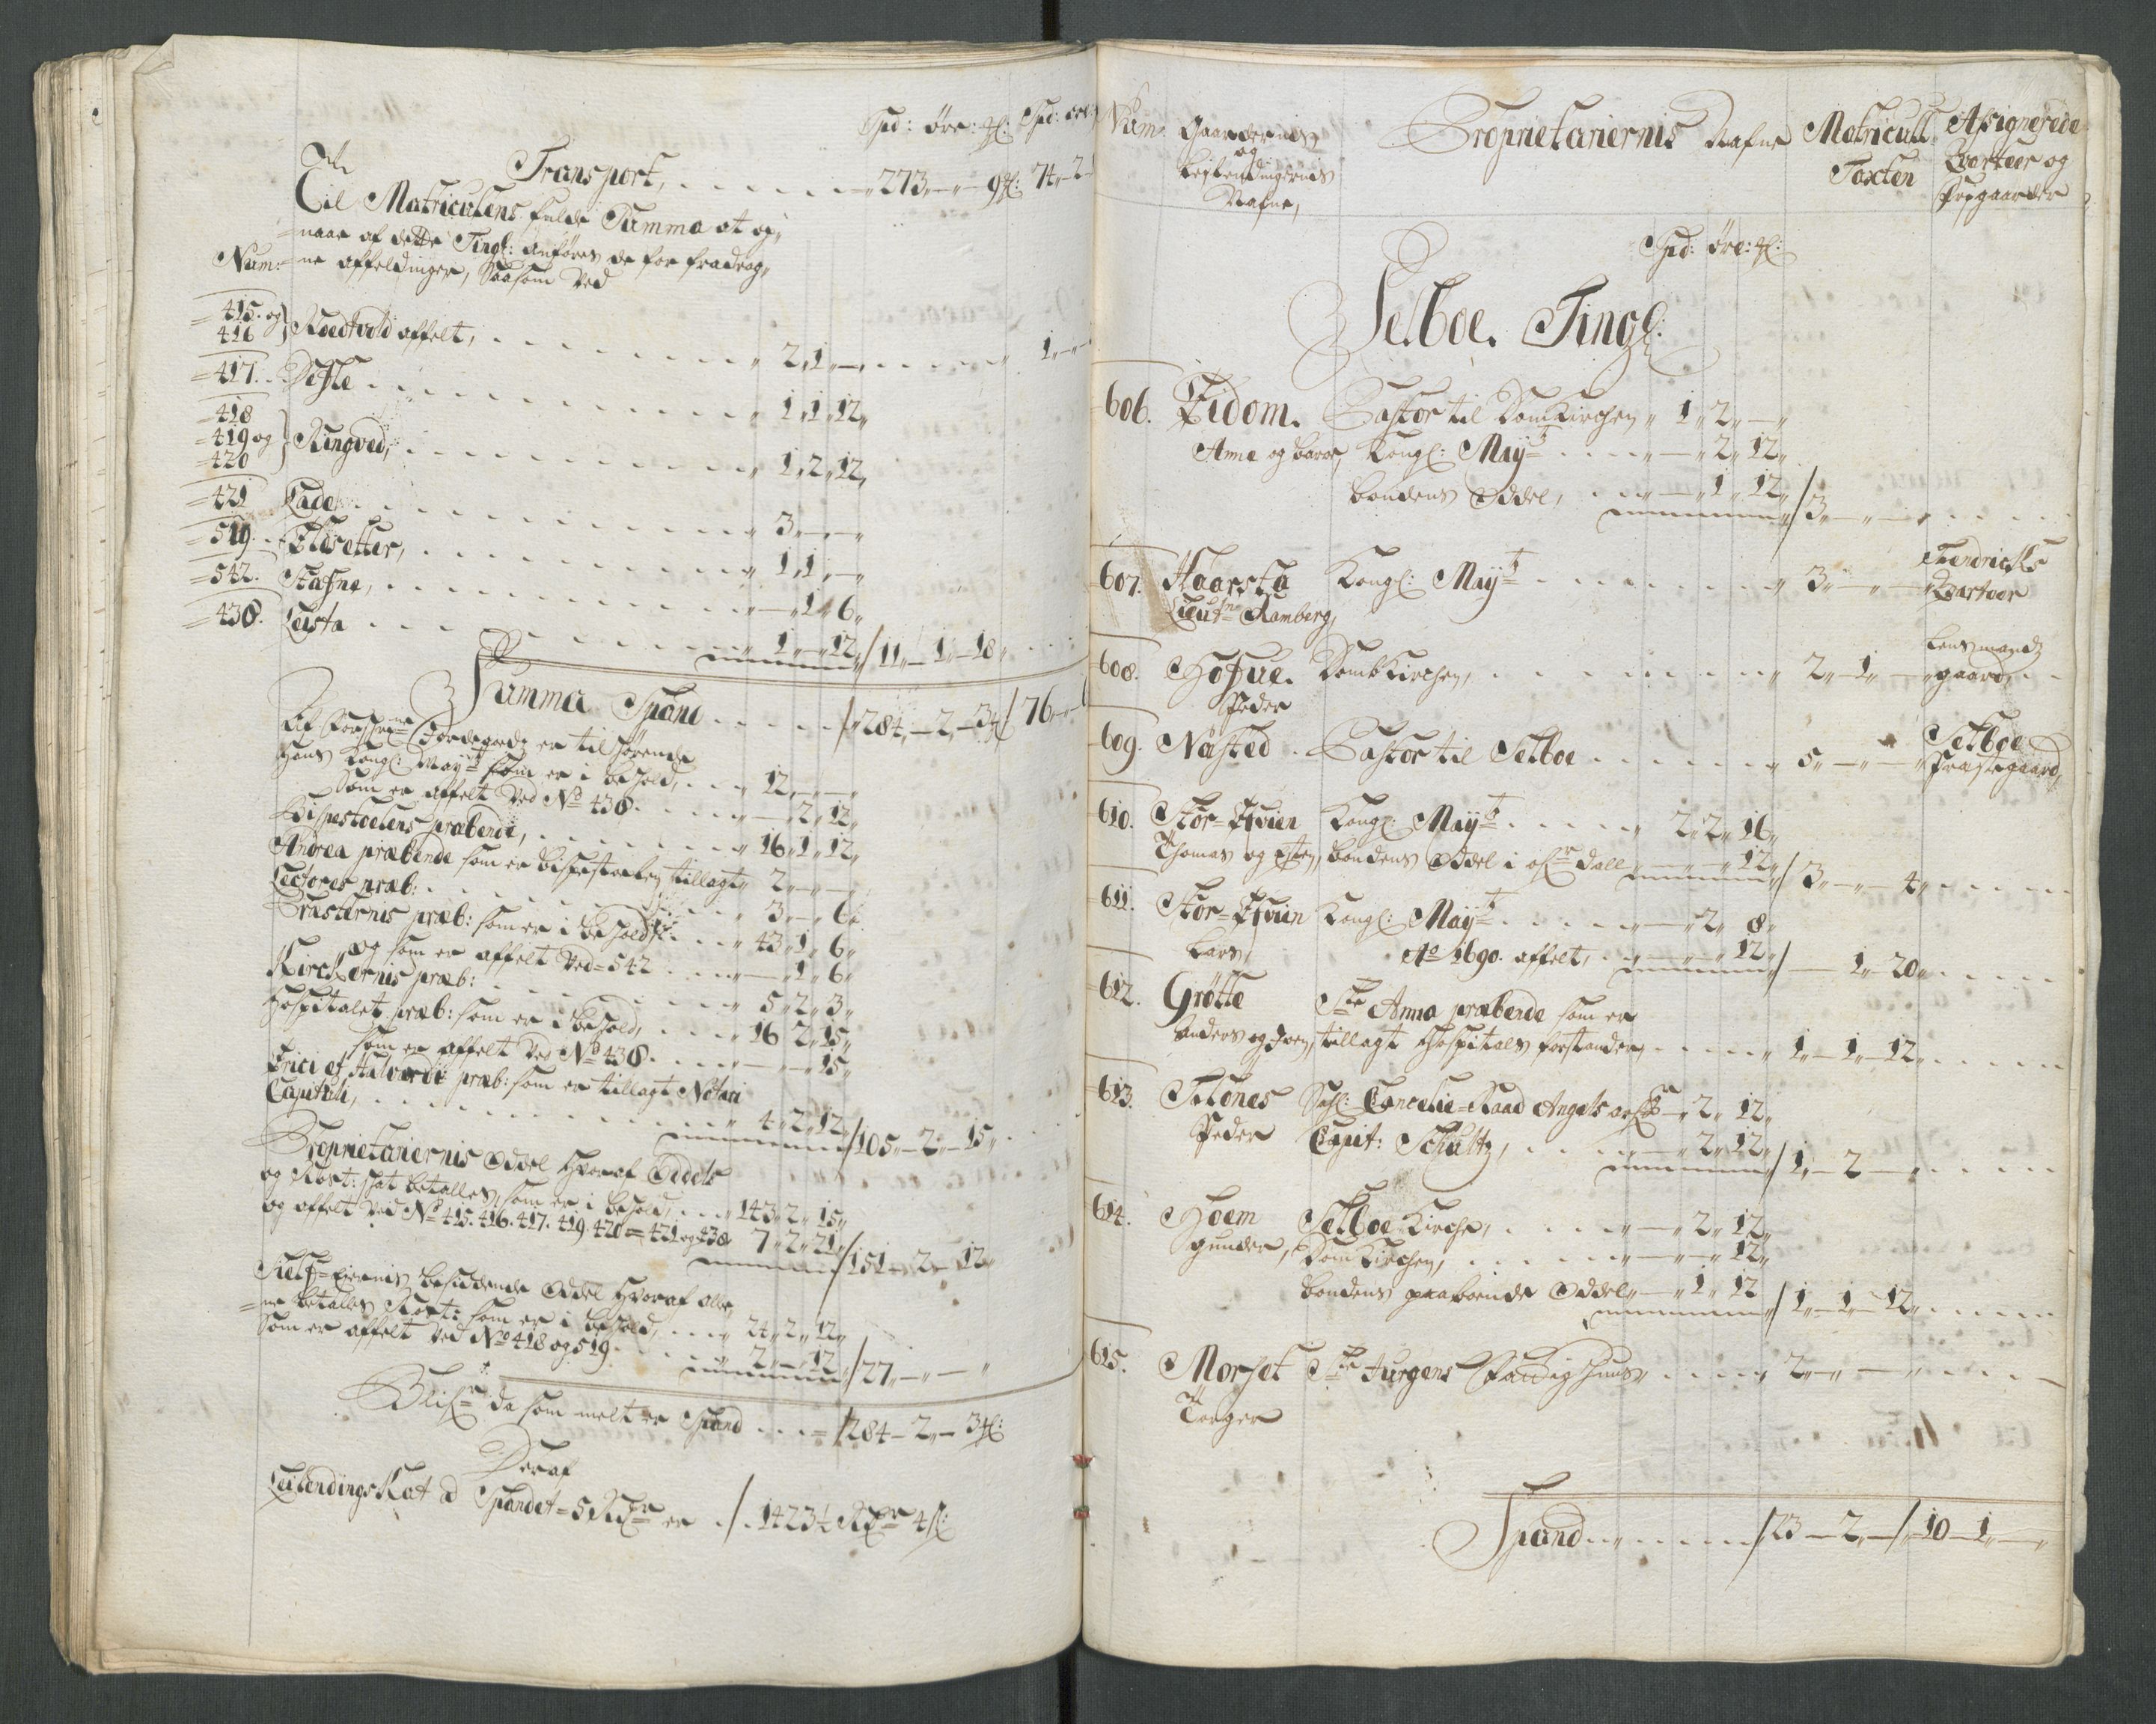 Spd: öre: ꝳ: Spd: öre
Transport, . . . . . . 273,, — 9 ꝳ: 74,, 2
Til Matriculens fulde Summa at og,,
=naae af dette Tingl: anföres de for fradrag,,
Num:= ne affeldinger, Saasom Ved
415. og
416 Roedtvold affelt, . . . 2,, 1 — . . . 1,, —
417. Defle . . . 1,, 1,, 12,,
418
419 og Ringved, . . . 1,, 2,, 12,,
420
421 Lade . . . 3,, — —
519. Eldsetter, . . . 1,, 1,, —
542. Stafne, . . . — 1,, 6,,
438. Leista . . . 1,, — 12,, / 11,, — 1,, — 18,,
Summa Spand . . . /284,, — 2,, — 3 ꝳ / 76,, —
Af forschrne Jordegodz er tilhörende
Hans Kongl: Maytt som er i behold, . . . 12,, — —
Som er affelt Ved No 438. . . . — 2,, 12,,
Bispestoelens præbende, . . . 16,, 1,, 12,,
Andrea præbende som er bispestoelen tillagt,, 2,, — —
Lectores præb: . . . 3,, — 6,,
Præsternis præb: som er i behold . . . 43,, 1,, 6,,
og som er affelt Ved = 542 . . . — 1,, 6,,
Kirchernis præb: . . . 5,, 2,, 3,,
Hospitalet præb: som er i behold, . . . 16,, 2,, 15,,
som er affelt Ved No 438. . . . — — 15,,
Erici et Halvardi præb: som er tillagt Notari
Capituli, . . . 4,, 2,, 12,, / 105,, — 2,, — 15,,
Proprietariernis Oddel Hvoraf Oddels
og Rost: skat betalles, som er i behold, . . . 143,, 2,, 15,,
og affelt Ved No 415. 416. 417. 419. 420 = 421 og 438 7,, 2,, 21,, / 151 — 2,, — 12,,
Sielf-Eiernis besiddende Oddel Hvoraf alle,,
=ne betalles Rost: som er i behold, . . . 24,, 2,, 12,,
Som er affelt Ved No 418 og 519. . . . 2,, — 12,, / 27,, — —
Blifr da som melt er Spand . . . = /284 — 2,, — 3 ꝳ:
Deraf
LeilendingsKat a Spandet = 5 Rdr er . / . 1423½ Rdr 4 ß:
Num: Gaardernes og Leilendingernis Nafne, Proprietariernis Nafne Matricull Taxten Assignerede Qvarteer og Præstgaarder
Spd: öre: ꝳ:
Selboe. Tingl:
606. Eidom. Pastor til DomKirchen,, 1,, 2,, —
Arne og Baar, Kongl: Maytt . . . — 2,, 12,,
bondens Oddel, . . . — 1,, 12,, / 3,, — —
607. Haarsta Kongl: Maytt . . . 3,, — — Fendricks
Lieutne Ramberg, Qvarteer
608. Hofue. DombKirchen, . . . 2,, 1,, — Lensmandz
Peder gaard
609. Nästed . Pastor til Selboe . . . 5,, — — Selboe
Præstegaard,
610. Stor=Evien Kongl: Maytt . . . 2,, 2,, 16,,
Thomas og Esten, bondens Oddel i ofr dall — — 12,, / 3,, — 4,,
611. Stor=Evien Kongl: Maytt . . . — 2,, 8,,
Lars, Ao 1690. affelt, . . . — 12,, / — 1,, 20,,
612. Grötte Ste Anna præbende som er
Anders og Joen, tillagt Hospitals forstander, . . . 1,, 1,, 12,,
613. Selones Sahl: Cancelie=Raad Angels arf: — 2,, 12,,
Peder Capit: Schultz, . . . — 2,, 12,, / 1,, — 2 —
614. Hoem Selboe Kirche, . . . — 2,, 12,,
gunder, DomKirchen, . . . — — 12,,
bondens paaboende Oddel,, — 1,, 12 / 1,, — 1,, 12,,
615. Morset Ste Jurgens Fattighuus, . . . 2,, — —
Torger
Spand . . . /23 — 2,, — /10 — 1,, —